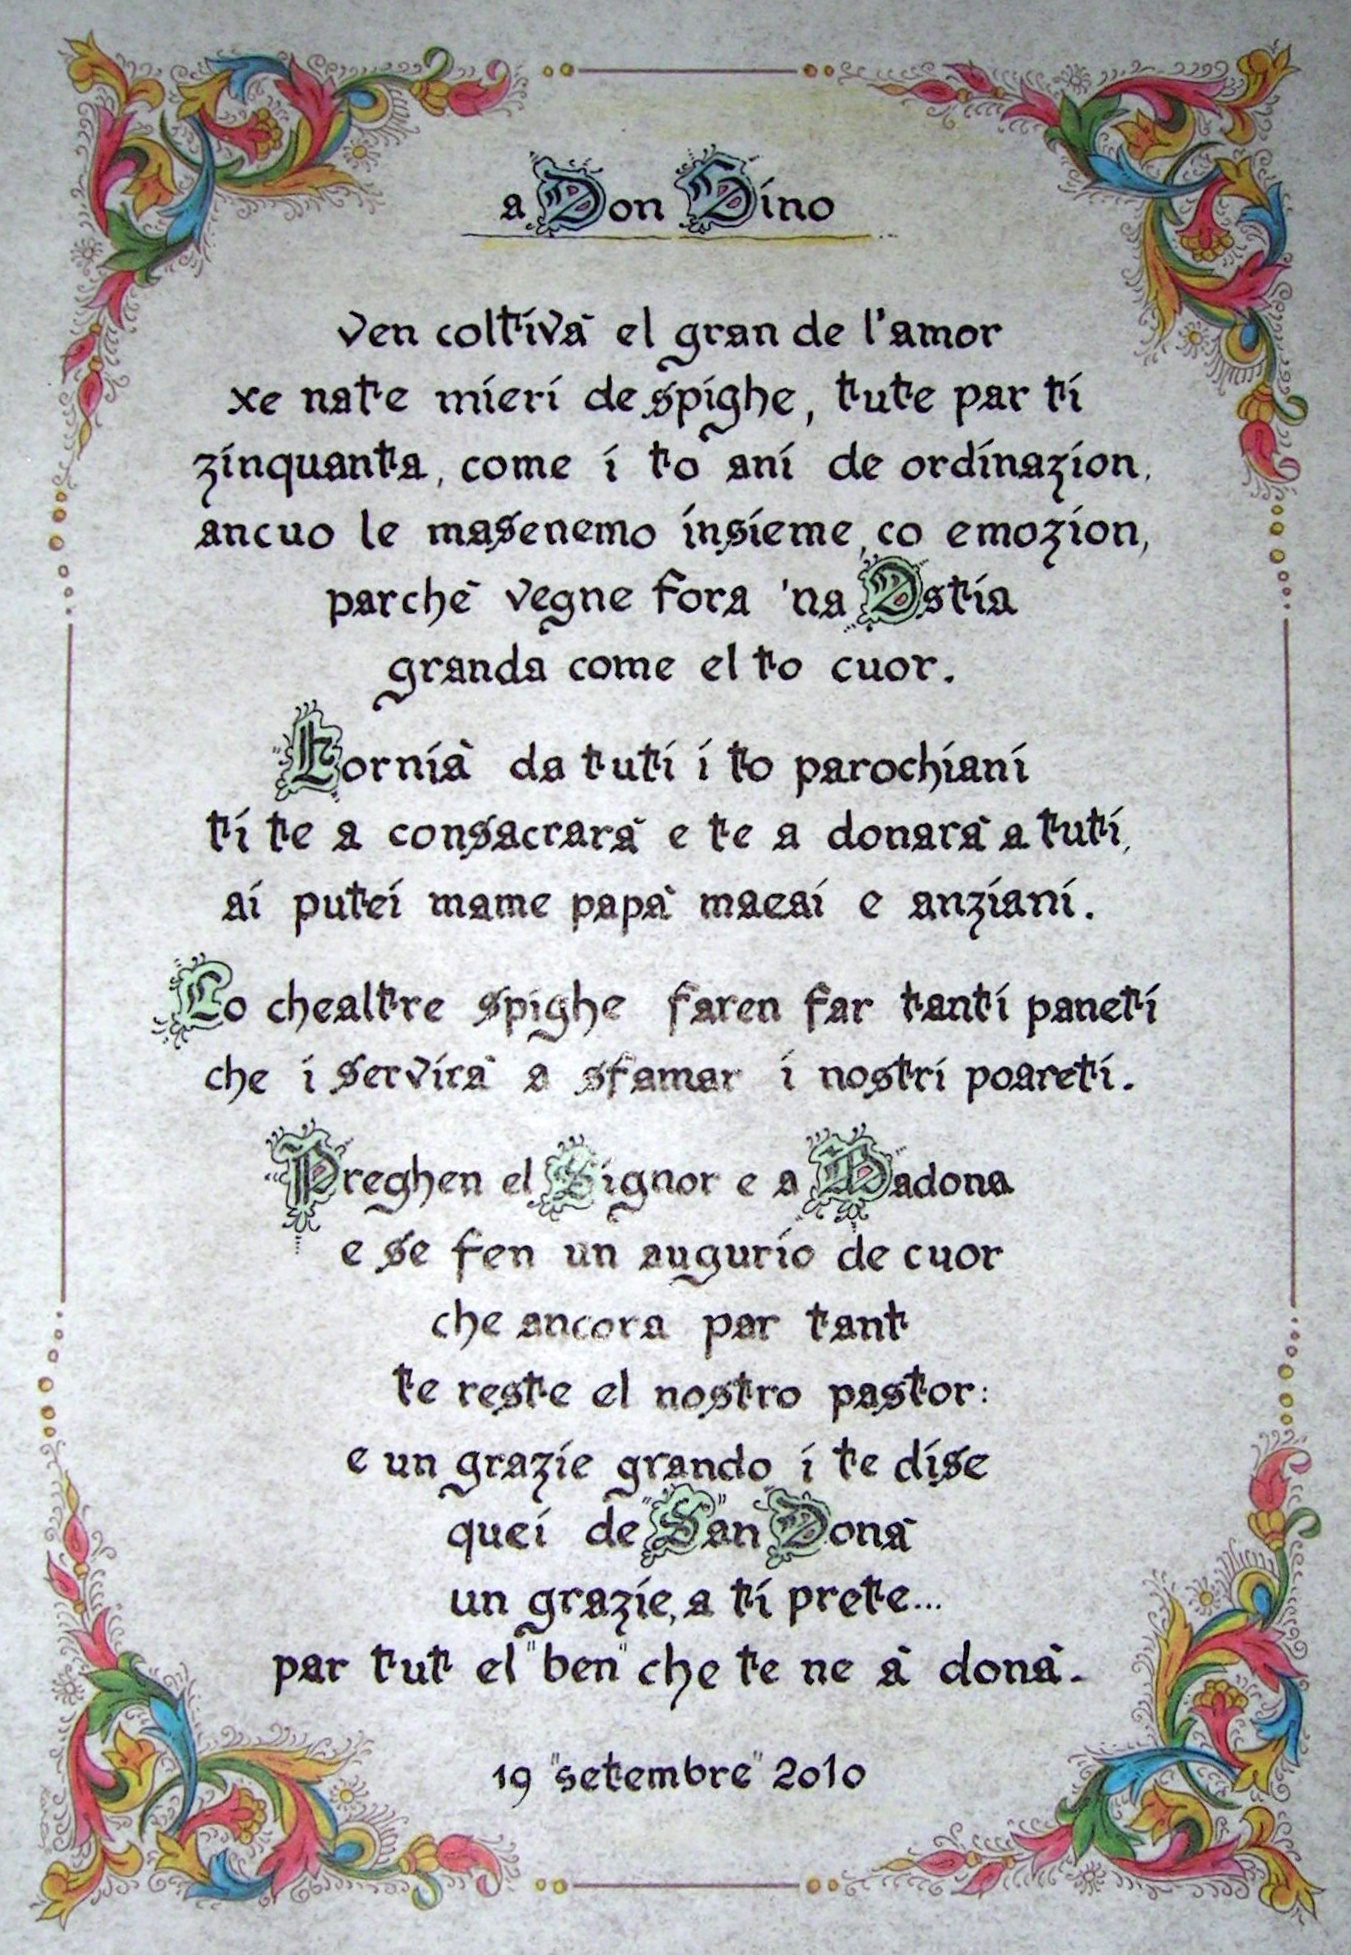 a Don Dino
ven coltivà el gran de l'amor
xe nate mieri de spighe, tute par ti
zinquanta, come i to ani de ordinazion,
ancuo le masenemo insieme, co emozion,
parchè vegne fora 'na Ostia
granda come el to cuor.
Fornià da tuti i to parochiani
ti te a consacrarà e te a donarà a tuti,
ai putei mame papà maeai e anziani.
Co chealtre spighe faren far tanti paneti
che i servirà a sfamar i nostri poareti.
Preghen el Signor e a Madona
e se fen un augurio de cuor
che ancora par tant
te reste el nostro pastor:
e un grazie grando i te dise
quei de "San Donà"
un grazie, a ti prete...
par tut el "ben" che te ne à donà.
19 "setembre" 2010